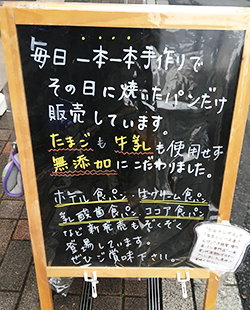 毎日 一本一本手作りで
その日に焼いたパンだけ
販売しています。
たまごも牛乳も使用せず
無添加にこだわりました。
ホテル食パン 生クリーム食パン
乳酸菌食パン ココア食パン
など新発売もぞくぞく
登場しています。
ぜひご賞味下さい。